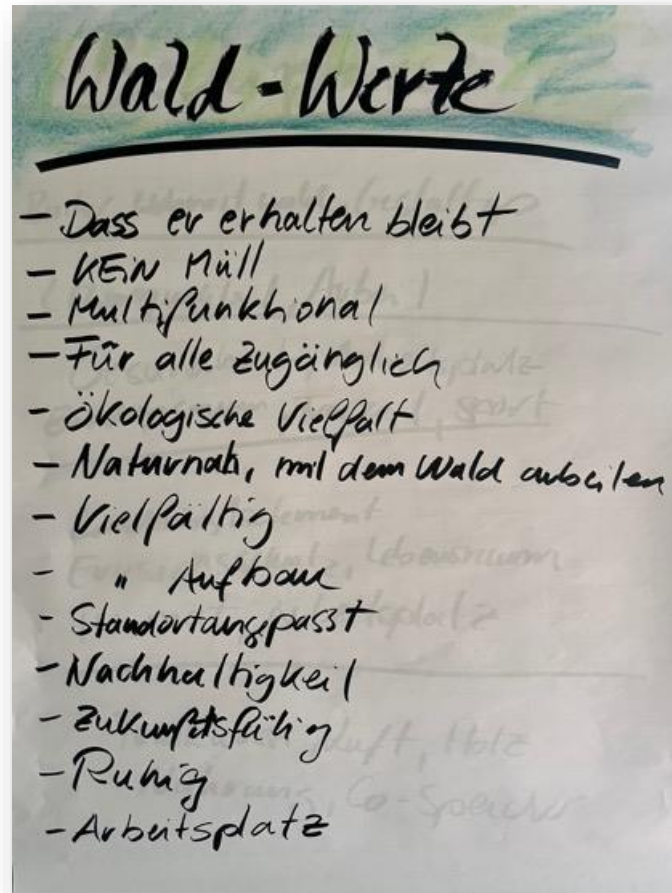 Wald-Werte
- Dass er erhalten bleibt
- KEiN Müll
- Multifunktional
- Für alle zugänglich
- Ökologische Vielfalt
- Naturnah, mit dem Wald arbeiten
- Vielfältig
- " Aufbau
- Standortangepasst
- Nachhaltigkeit
- Zukunftsfähig
- Ruhig
- Arbeitsplatz